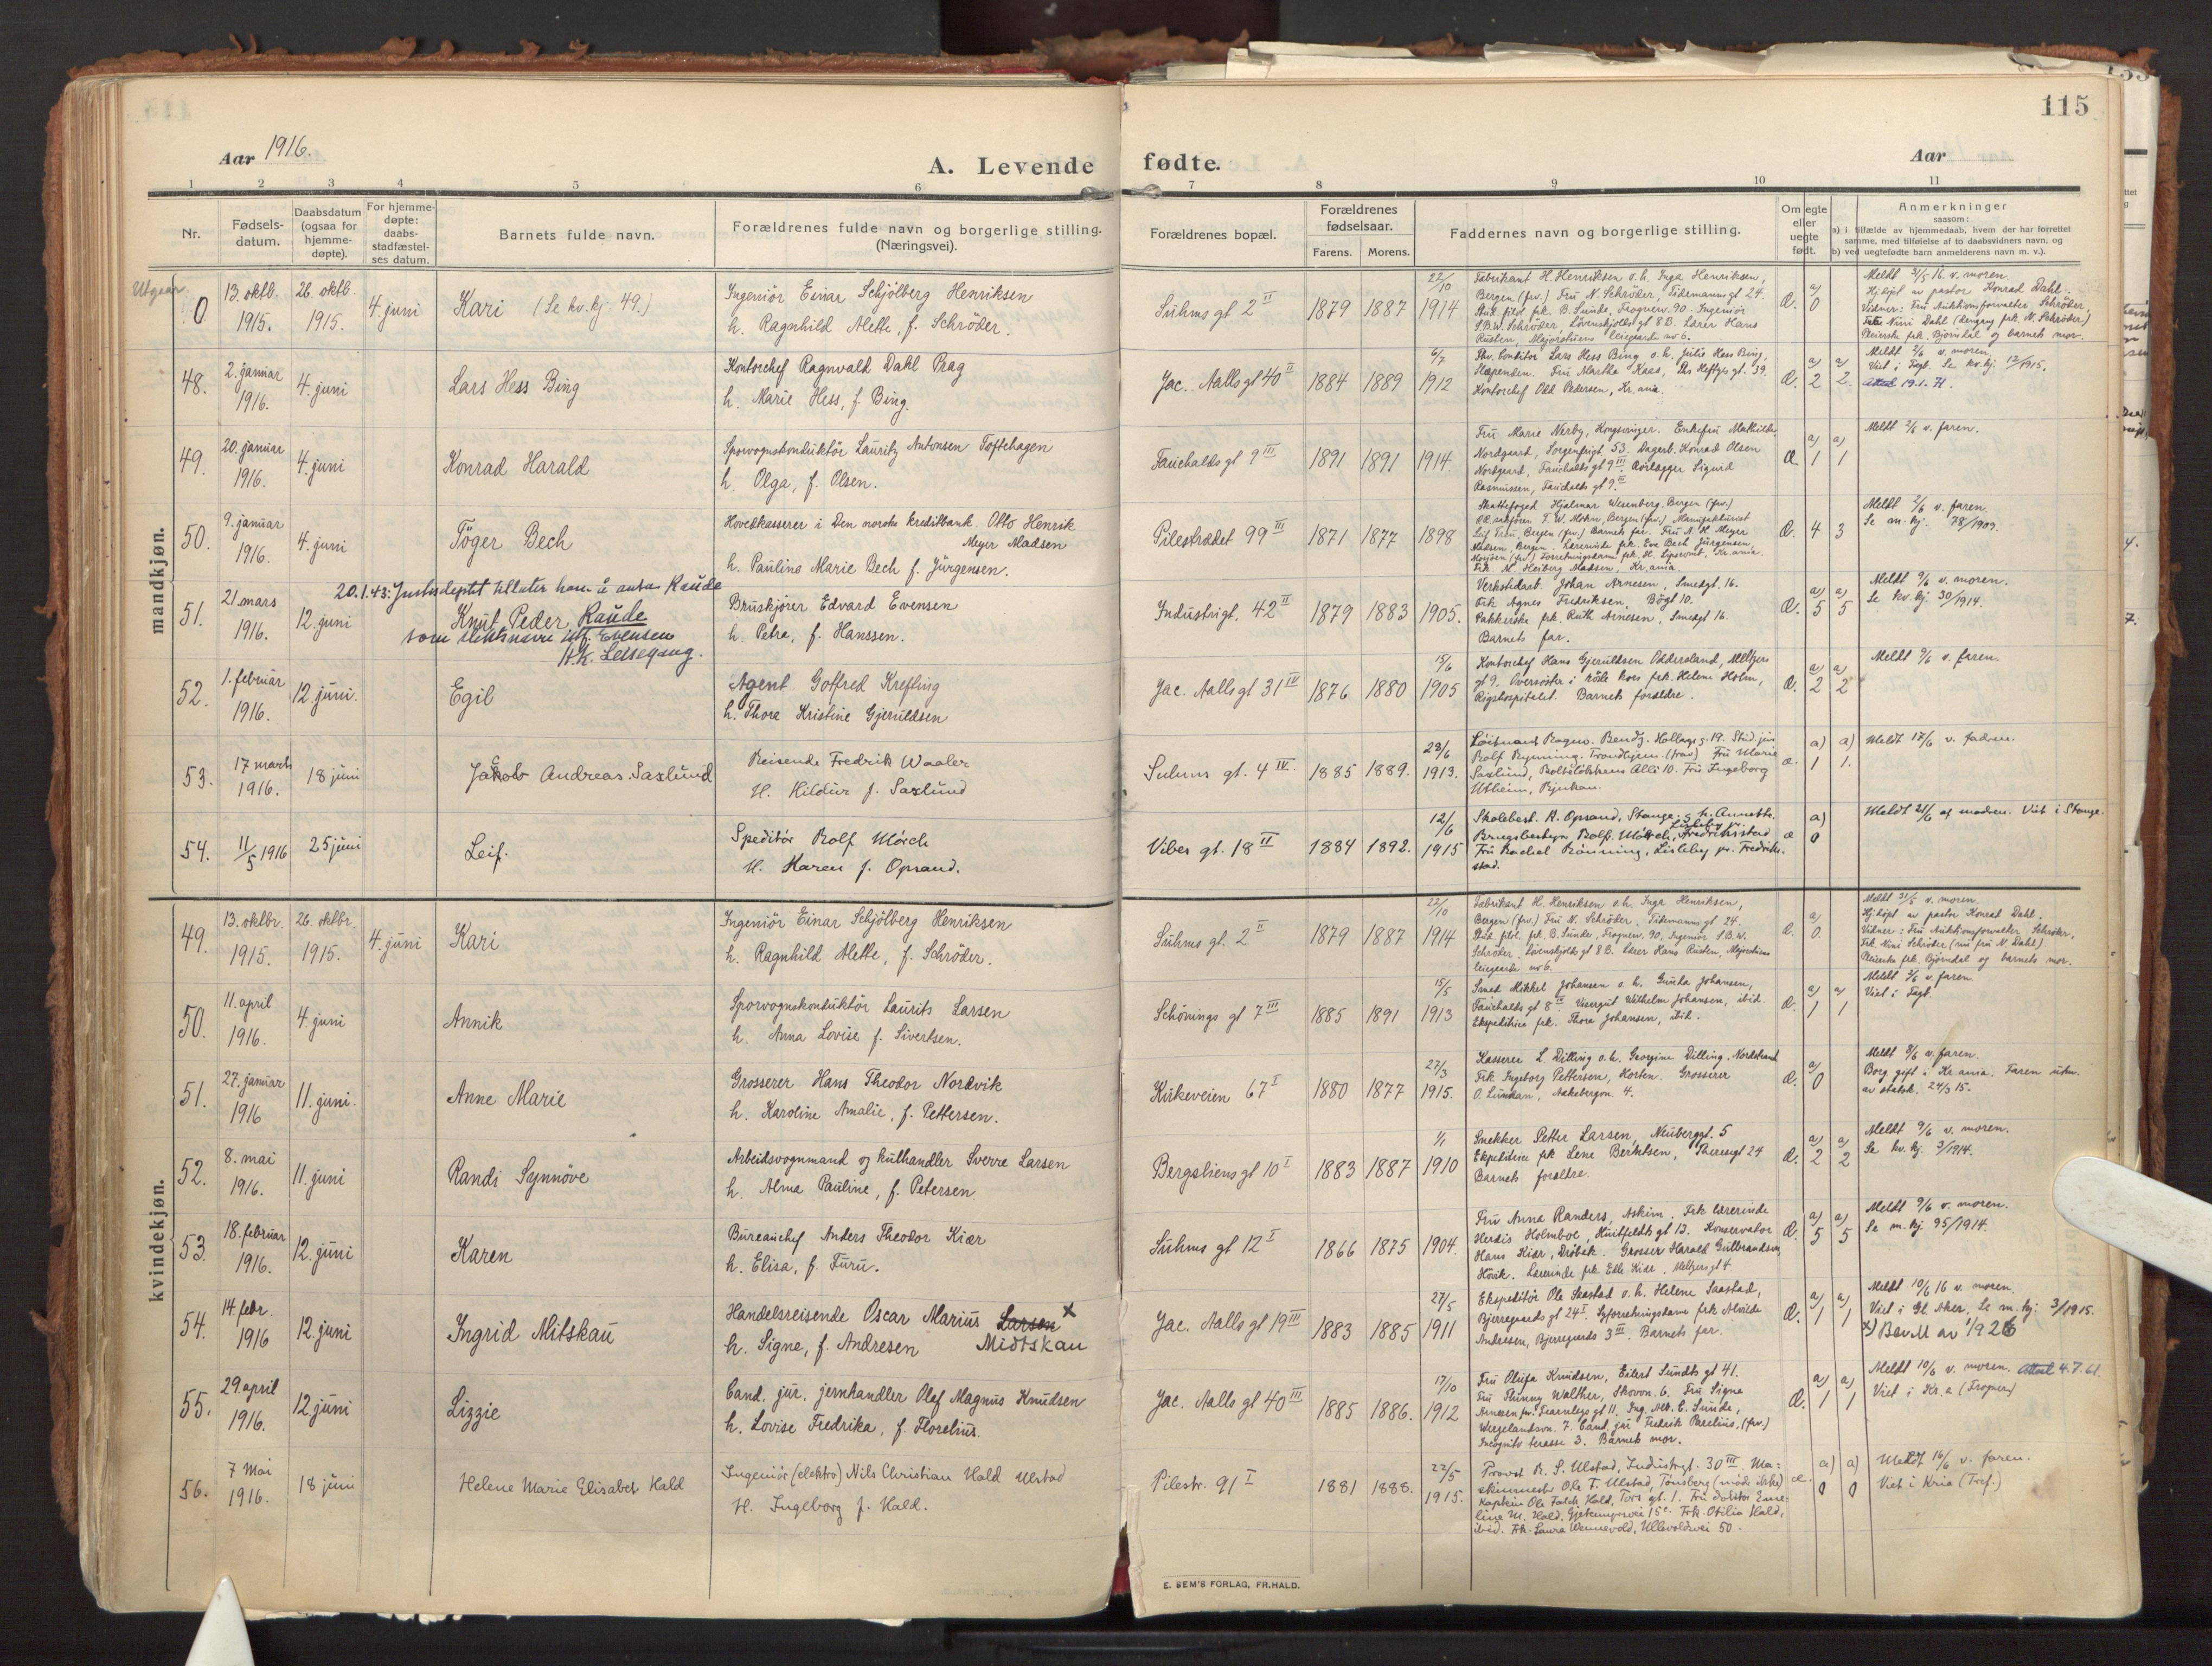 115
Aar 1916.
A. Levende fødte.
Aar
1 2 3 4 5 6 7 8 9 10 11
Nr.
Fødsels-
datum.
Daabsdatum
(ogsaa for
hjemme-
døpte).
For hjemme-
døpte:
daabs-
stadfæstel-
ses datum.
Barnets fulde navn.
Forældrenes fulde navn og borgerlige stilling.
(Næringsvei).
Forældrenes bopæl.
Forældrenes
fødselsaar.
Farens. Morens.
Faddernes navn og borgerlige stilling.
Om egte
eller
uegte
født.
Anmerkninger
saasom:
a) i tilfælde av hjemmedaab, hvem der har forrettet
samme, med tilføielse af to daabsvidners navn, og
b) ved uegtefødte barn anmelderens navn m. v.).
mandkjøn.
Utgaar
0
13. oktb.
1915.
26. oktb.
1915.
4. juni
Kari (Se kv. kj. 49.)
Ingeniör Einar Schjölberg Henriksen
h. Ragnhild Alette, f. Schröder.
Suhms gt 2 II
1879 1887
22/10
1914
Fabrikant H. Henriksen o. h. Inga Henriksen,
Bergen (frv.) Fru N. Schröder, Tidemands gt 24.
Stud. filol. frk. B. Sunde, Frognerv. 90. Ingeniör
S.B.W. Schröder, Lövenskjolds gt 8 B. Lærer Hans
Rusten, Majorstuens leiegaard no 6.
Æ.
a)
0
Meldt 31/5 16 v. moren.
Hj.döpt av pastor Konrad Dahl.
Vidner: Fru Auktionsforvalter Schröder,
Nini Dahl (dengang frk. N. Schröder)
Pleierske frk. Bjørndal og barnets mor.
48.
2. januar
1916.
4. juni
Lars Hess Bing
Kontorchef Ragnvald Dahl Prag
h. Marie Hess, f. Bing.
Jac. Aalls gt 40 II
1884 1889
6/7
1912
Lars Hess Bing o. h. Julie Hess Bing,
Slependen. Fru Martha Kaas, Thr Heftyes gt. 39.
Kontorchef Odd Pedersen, Kr.ania.
Æ.
a) a)
2 2.
Meldt 2/6 v. moren.
Viet i Fagt. Se kv. kj. 12/1915.
Attest 19.1.71.
49.
20. januar
1916.
4. juni
Konrad Harald
Sporvognskonduktör Lauritz Antonsen Toftehagen
h. Olga, f. Olsen.
Fauchalds gt 9 III
1891 1891 1914
Fru Marie Nerby, Kongsvinger. Enkefru Mathilde
Nordgaard, Sorgenfrigt 53. Dagarb. Konrad Olsen
Nordgaard, Fauchalds gt 9 III. Avlægger Sigurd
Rasmussen, Fauchalds gt 9 III.
Æ.
a) a)
1 1
Meldt 2/6 v. faren.
50.
9. januar
1916.
4. juni
Töger Bech
Hovedkasserer i Den norske kreditbank Otto Henrik
Meyer Madsen
h. Pauline Marie Bech f. Jürgensen.
Pilestrædet 99 III
1871 1877 1898
Skattefoged Hjalmar Wesenberg, Bergen (frv.)
O.R. sakförer F. W. Mohn, Bergen (frv.) Manufakturist
Bergen (frv.) Barnets far. Fru N. H. Meyer
Madsen, Bergen. Lærerinde frk. Eva Bech Jürgensen,
(frv.) Forretningsdame frk. H. Kr.ania.
Frk. M. Heiberg Madsen, Kr.ania.
Æ. 4 3
Meldt 2/6 v. faren.
Se m. kj. 78/1909.
51.
21. mars
1916.
12. juni
20.1.43: Justisdeptet tillater ham å anta Raude
Knut Peder Raude
som slektsnavn istf. Evensen
H.K. Lessegang.
Bruskjörer Edvard Evensen
h. Petra, f. Hanssen.
Industrigt, 42 II
1879 1883 1905.
Verkstedarb. Johan Arnesen, Smedgt. 16.
Frk Agnes Fredriksen, Bögt 10.
Pakkerske frk. Ruth Arnesen, Smedgt 16.
Barnets far.
Æ.
a) a)
5 5
Meldt 9/6 v. moren.
Se kv. kj. 30/1914.
52.
1. februar
1916.
12. juni.
Egil
Agent Gotfred Krefting
h. Thora Kristine Gjeruldsen
Jac. Aalls gt 31 IV
1876 1880
15/6
1905
Kontorchef Hans Gjeruldsen Odderøland, Meltzers
gt 9. Oversöster i röde kors frk. Helene Holm,
Rigshospitalet. Barnets forældre.
Æ.
a) a)
2 2
Meldt 9/6 v. faren.
53.
17 marts
1916.
18 juni
Jakob Andreas Saxlund
Reisende Fredrik Waaler
H. Hildur f. Saxlund
Suhms gt. 4 IV.
1885 1889.
28/6
1913.
Löitnant Ragnv. Bendz. Hollags g. 19. Stud. jur.
Rolf Rynning. Trondhjem. (frav) Fru Marie
Saxlund, Alle 10. Fru Ingeborg
Utheim, Rjukan.
æ
a) a)
1 1.
Meldt 17/6 v. fadren.
54.
11/5 1916
25 juni
Leif.
Speditör Rolf Mörch
H. Karen f. Opsand.
Vibes gt. 18 II
1884 1892.
12/6
1915
Skolebest. K. Opsand, Stange. & h. Annette.
Brugsbestyrer Rolf Mörch, Lisleby pr. Fredrikstad
Fru Rachel Rönning, Lisleby pr. Fredrik-
stad.
æ
a)
0
Meldt 21/6 af modren. Viet i Stange.
kvindekjøn.
49.
13. oktbr.
1915.
26. oktbr
1915.
4. juni
Kari
Ingeniör Einar Schjölberg Henriksen
h. Ragnhild Alette, f. Schröder.
Suhms gt. 2 II
1879 1887
22/10
1914
Fabrikant H. Henriksen o. h. Inga Henriksen,
Bergen (frv.) Fru N. Schröder, Tidemands gt 24.
Stud. filol. frk. B. Sunde, Frognerv. 90, Ingeniör S.B.W.
Schröder, Lövenskjolds gt 8 B. Lærer Hans Rusten, Majorstuens
leiegaard no 6.
Æ.
a)
0.
Meldt 31/5 v. moren.
Hj.döpt av pastor Konrad Dahl.
Vidner: Fru Auktionsforvalter Schröder,
Frk. Nini Schröder (nu fru N. Dahl).
Pleierske frk. Björndal og barnets mor.
50.
11. april
1916.
4. juni
Annik
Sporvognskonduktör Laurits Larsen
h. Anna Lovise f. Sivertsen.
Schönings gt 7 III
1885 1891
15/5
1913
Smed Mikkel Johansen o. h. Gunda Johansen,
Fauchalds gt 8 II. Visergut Wilhelm Johansen, ibid.
Ekspeditrice frk. Thora Johansen, ibid.
Æ.
a) a)
1 1
Meldt 3/6 v. faren.
Viet i Fagt.
51.
27. januar
1916
11. juni.
Anne Marie
Grosserer Hans Theodor Nordvik
h. Karoline Amalie, f. Pettersen.
Kirkeveien 67 I
1880 1877
27/3
1915.
Kasserer L. Dilling o. h. Georgine Dilling, Nordstrand
Frk Ingeborg Pettersen, Horten. Grosserer
O. Lunkan, Aakebergvn. 4.
Æ.
a)
0
Meldt 8/6 v. faren.
Borg. gift i Kr.ania. Faren utm.
av statsk. 24/3 15.
52.
8. mai
1916.
11. juni
Randi Synnöve
Arbeidsvognmand og kulhandler Sverre Larsen
h. Alma Pauline, f. Petersen
Bergsliens gt 10 I
1883 1887
1/1
1910
Snekker Petter Larsen, Neubergt. 5
Ekspeditrice frk Lene Berntsen, Theresgt 24
Barnets forældre.
Æ.
a) a)
2 2
Meldt 9/6 v. moren.
Se kv. kj. 3/1914.
53.
18. februar
1916.
12. juni
Karen
Bureauchef Anders Theodor Kiær
h. Elisa, f. Furu.
Suhms gt 12 I
1866 1875 1904.
Fru Anna Randers, Askim. Frk lærerinde
Herdis Holmboe, Huitfeldts gt 13. Konservator
Hans Kiær, Dröbak. Grosser Harald Gulbrandsen
Hövik. Lærerinde frk Edle Kiær, Meltzers gt 4
Æ.
a) a)
5 5
Meldt 9/6 v. moren.
Se m. kj. 95/1914.
54.
14. febr.
1916
12. juni
Ingrid Mitskau
Handelsreisende Oscar Marius Larsen x
h. Signe, f. Andresen Midtskau
Jac. Aalls gt 19 III
1883 1885
27/5
1911
Ekspeditör Ole Saastad o. h. Helene Saastad,
Bjerregaards gt 24 I. Syforretningsdame frk Alvilde
Andresen, Bjerregaards 3 III. Barnets far.
Æ.
a) a)
1 1
Meldt 10/6 16 v. moren.
Viet i Gl. Aker. Se m. kj. 3/1915.
x) Bev. M av 1/1926
55.
29. april
1916.
12 juni
Lizzie
Cand. jur. jernhandler Olaf Magnus Knudsen
h. Lovise Fredrika, f. Florelius.
Jac. Aalls gt 40 III
1885 1886.
17/10
1912
Fru Olufa Knudsen, Eilert Sundts gt 41.
Fru Thinny Walther, Skovvn. 6. Fru Signe
Arnesen frv. Fearnleys gt 11. Ing. Alb. C. Sunde,
Wergelandsvn. 7. Cand. jur Fredrik Parelius, (frv.)
Incognito terasse 3. Barnets mor.
Æ.
a) a)
1 1
Meldt 10/6 v. moren. Attest 4.7.61.
Viet i Kr.a (Frogner)
56.
7 Mai
1916.
18 juni
Helene Marie Elisabet Hald
Ingeniör (elektro) Nils Christian Hald Ulstad
H. Ingeborg f. Hald.
Pilestr. 91 I
1881 1888.
22/5
1915.
Provst R. S. Ulstad, Industrigt. 30 III. Ma-
skinmester Ole F. Ulstad, Tönsberg (möde ikke)
Kaptein Ole Falck Hald, Tors gt. 1. Fru doktor Eme-
line M. Hald, Gjetemyrsvei 15 c. Frk. Otilia Hald,
ibid. Frk. Laura Wennevold, Ullevoldsvei 50.
æ.
a) a)
0 0
Meldt 16/6 v. faren.
Viet i Kria (Tref.)
E. SEM'S FORLAG, FR.HALD.